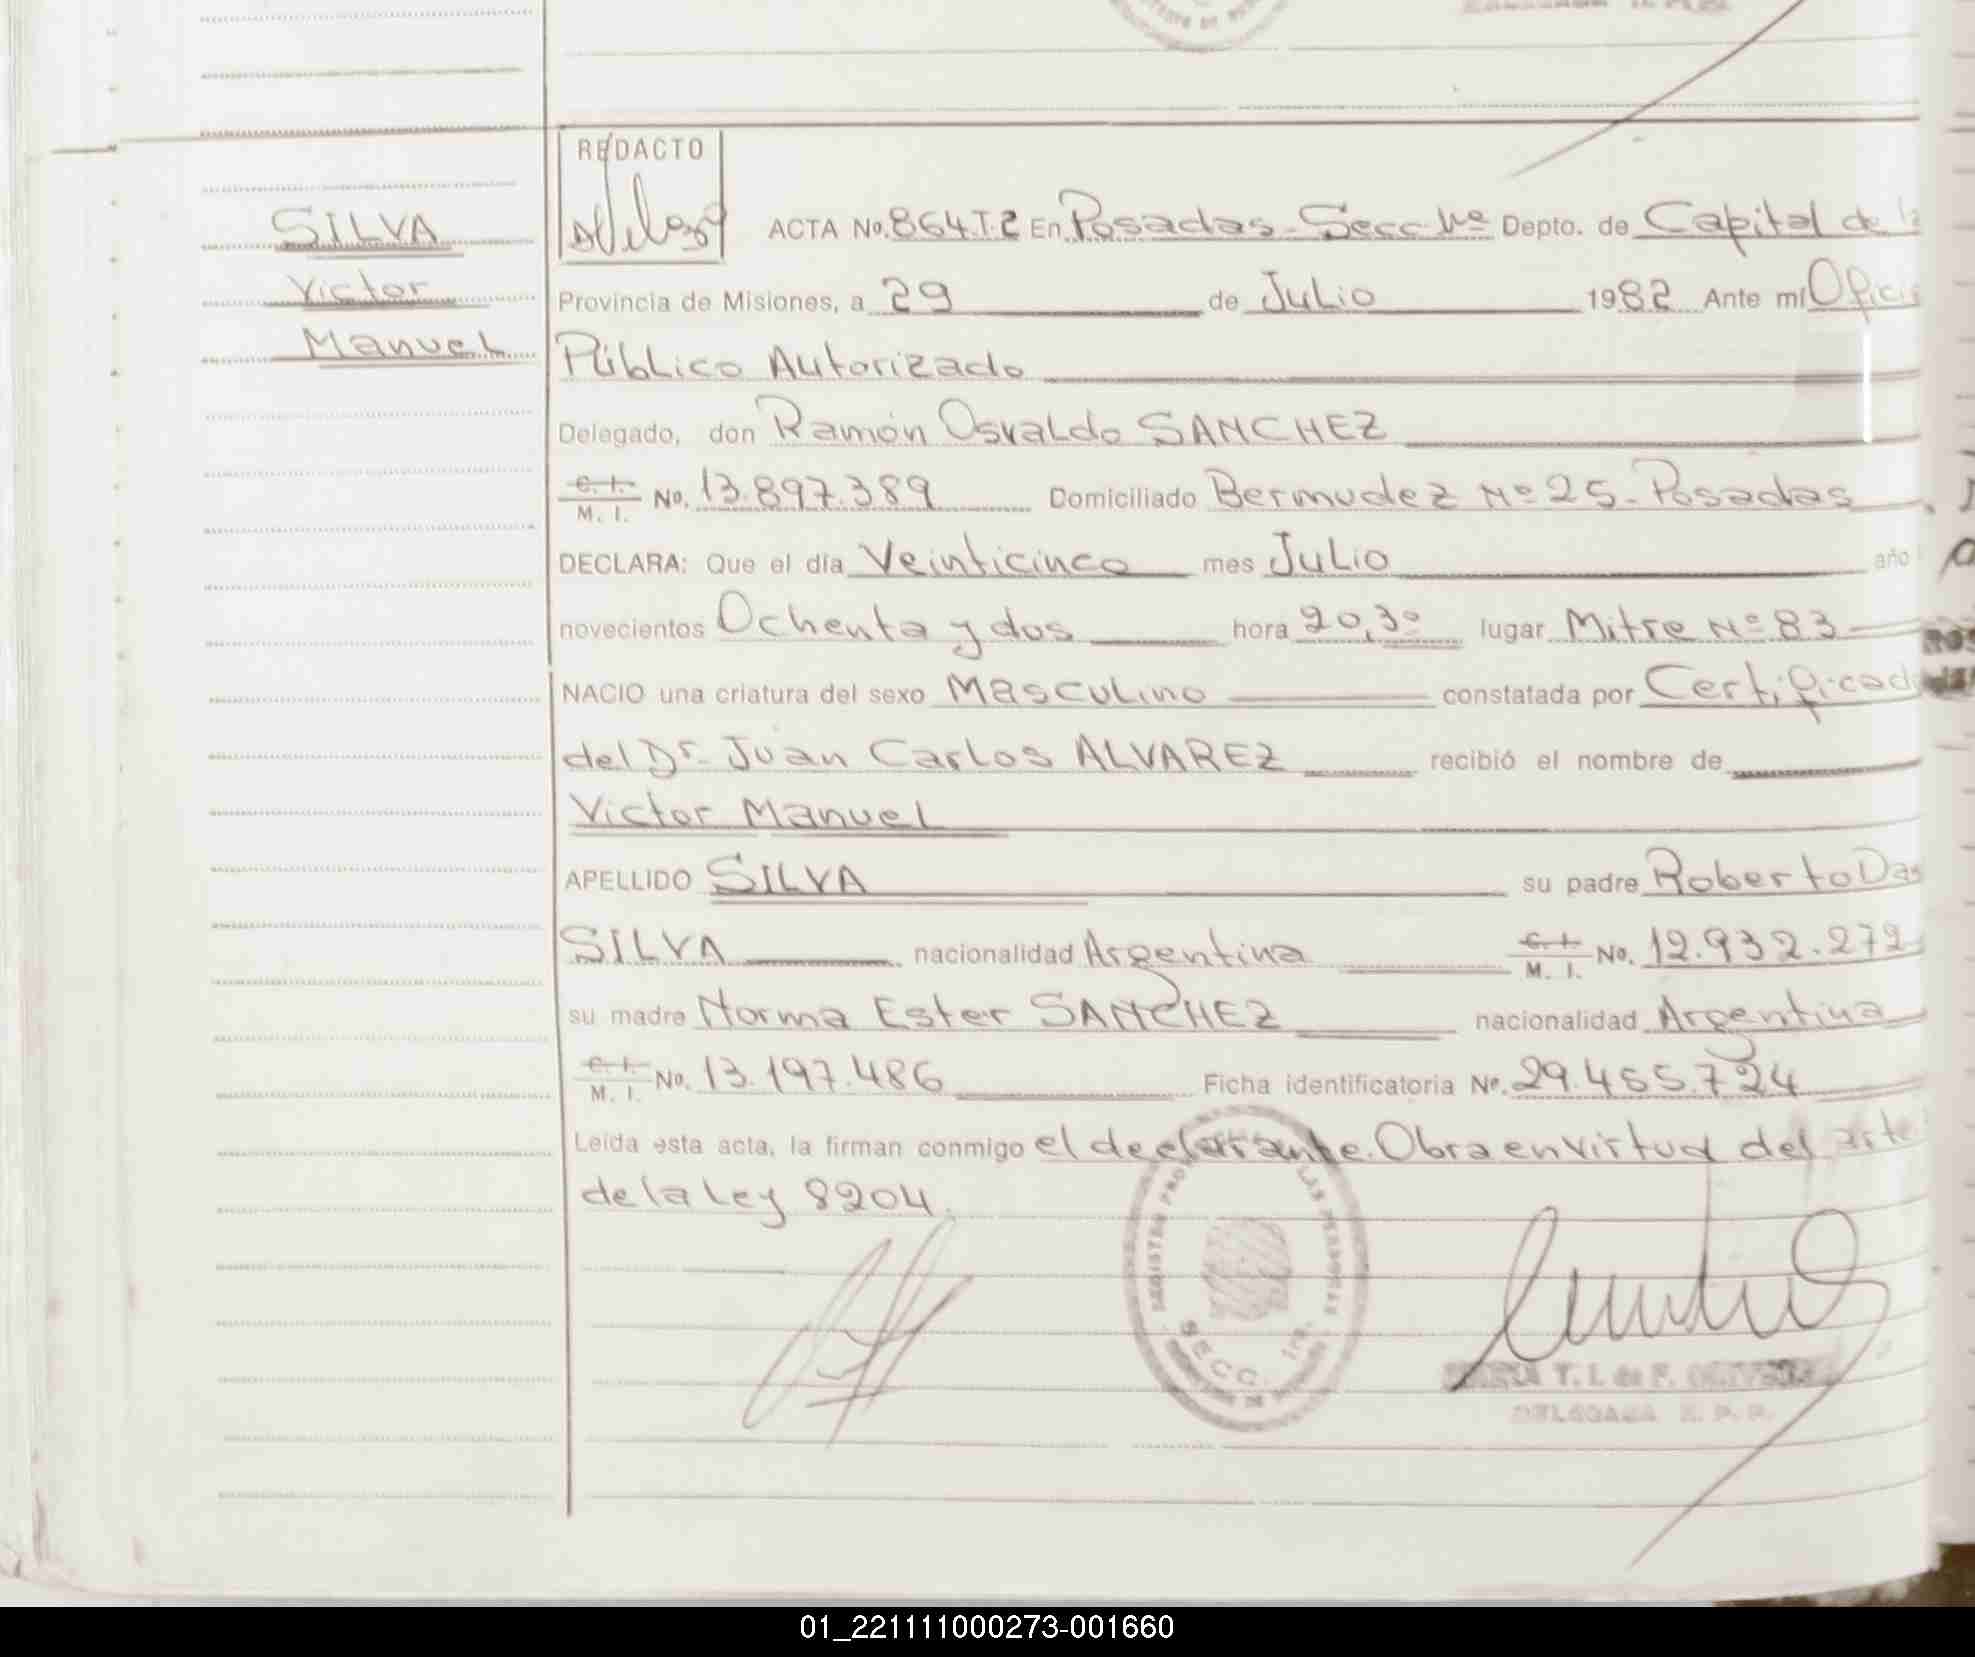 SILVA
Victor
Manuel
REDACTO
ACTA No. 864 T.2 En Posadas - Secc 1ra Depto. de Capital de la
Provincia de Misiones, a 29 de Julio 1982 Ante mí Ofici
Público Autorizado
Delegado, don Ramón Osvaldo SANCHEZ
C. I. M. I. No. 13.897.389 Domiciliado Bermudez Nº 25 - Posadas
DECLARA: Que el día Veinticinco mes Julio año
novecientos Ochenta y dos hora 20,30 lugar Mitre Nº 83
NACIO una criatura del sexo Masculino constatada por Certificad
del Dr. Juan Carlos ALVAREZ recibió el nombre de
Victor Manuel
APELLIDO SILVA su padre Roberto Das
SILVA nacionalidad Argentina C. I. M. I. No. 12.932.272
su madre Norma Ester SANCHEZ nacionalidad Argentina
C. I. M. I. No. 13.197.486 Ficha identificatoria Nº. 29.465.724
Leída esta acta, la firman conmigo el declarante. Obra en virtud del arte
de la Ley 8204.
SECC. 1ra.
T. I. de F.
DELEGADA R. P. P.
01_221111000273-001660